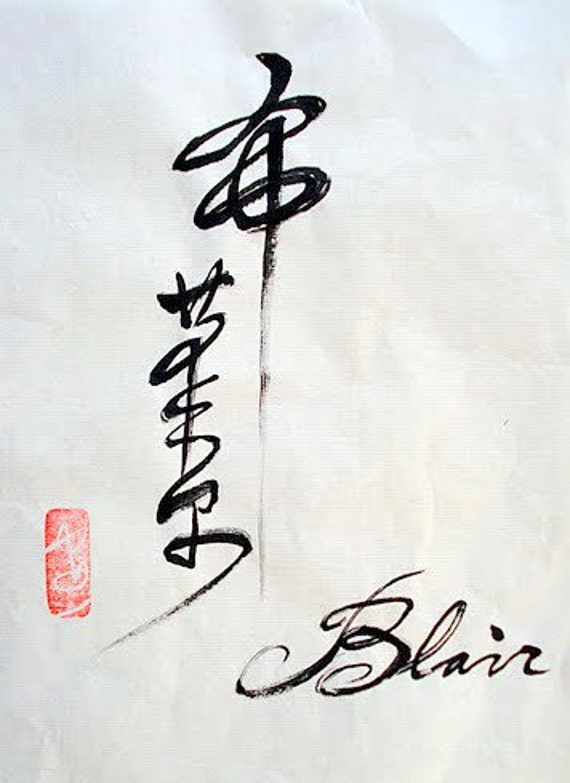 布
莱
尔
Blair